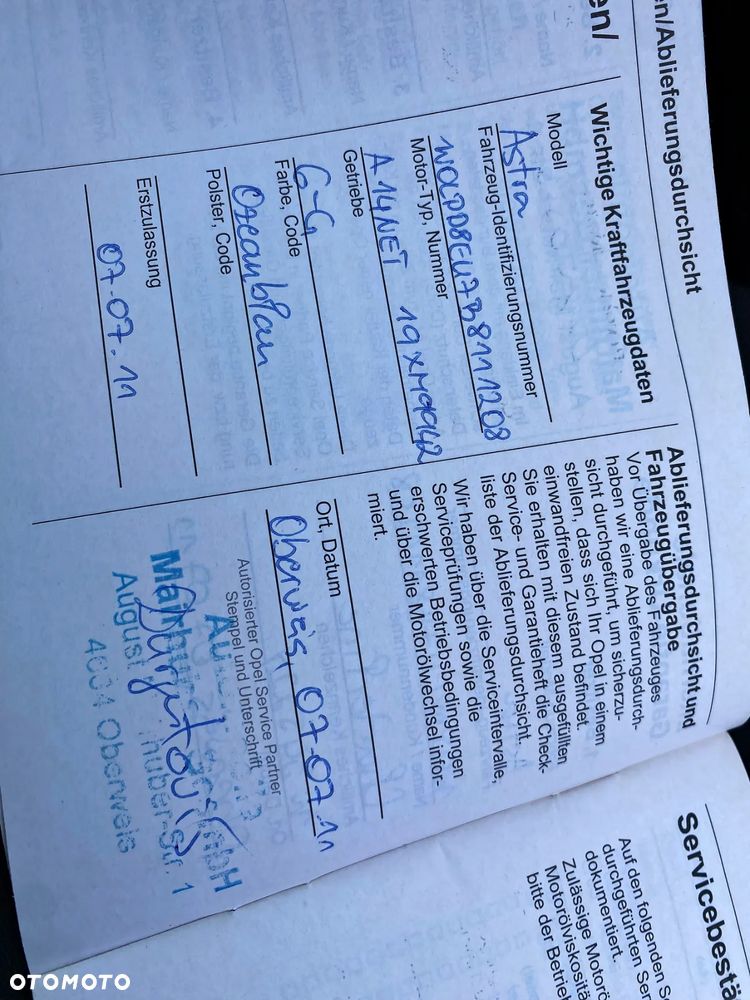 en/Ablieferungsdurchsicht
en/
Wichtige Kraftfahrzeugdaten
Modell
Astra
Fahrzeug-Identifizierungsnummer
W0LPD8EU7B8111208
Motor-Typ, Nummer
A14NET 19XM9942
Getriebe
6-G
Farbe, Code
Ozeanblau
Polster, Code
Erstzulassung
07.07.11
Ablieferungsdurchsicht und
Fahrzeugübergabe
Vor Übergabe des Fahrzeuges
haben wir eine Ablieferungsdurch-
sicht durchgeführt, um sicherzu-
stellen, dass sich Ihr Opel in einem
einwandfreien Zustand befindet.
Sie erhalten mit diesem ausgefüllten
Service- und Garantieheft die Check-
liste der Ablieferungsdurchsicht.
Wir haben über die Serviceintervalle,
Serviceprüfungen sowie die
erschwerten Betriebsbedingungen
und über die Motorölwechsel infor-
miert.
Ort, Datum
Oberweis, 07.07.11
Autorisierter Opel Service Partner
Stempel und Unterschrift
GmbH
August
1
4664 Oberweis
Servicebestä
Auf den folgenden S
durchgeführten Ser
dokumentiert.
Zulässige Motorö
Motorölviskositä
bitte der Betrie
OTOMOTO